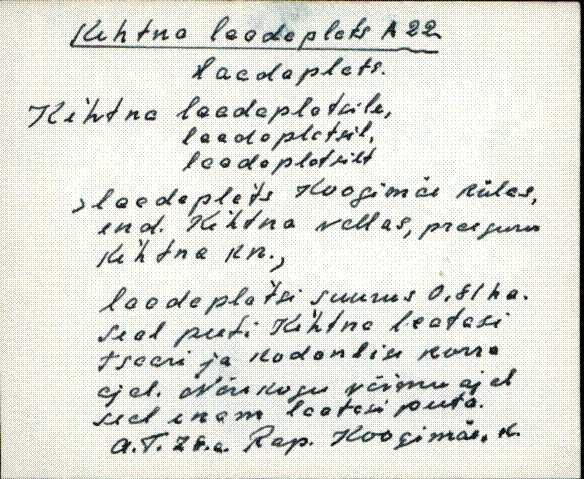 Ke'htna laadaplats A 22
Laadaplats.
Ke'htna laadaplatsile,
laadaplatsil,
laadaplatsilt
laadaplats Koogimäe külas,
end. Ke'htna vallas, praegune
Ke'htna kn.,
laadaplatsi suurus 0.81 ha.
Seal peeti Ke'htna laatasi
tsaari ja kodanlise korra
ajal. Nõukogu võimu ajal
seal enam laatasi peeta.
A.T. a. Rap. Koogimäe, k.